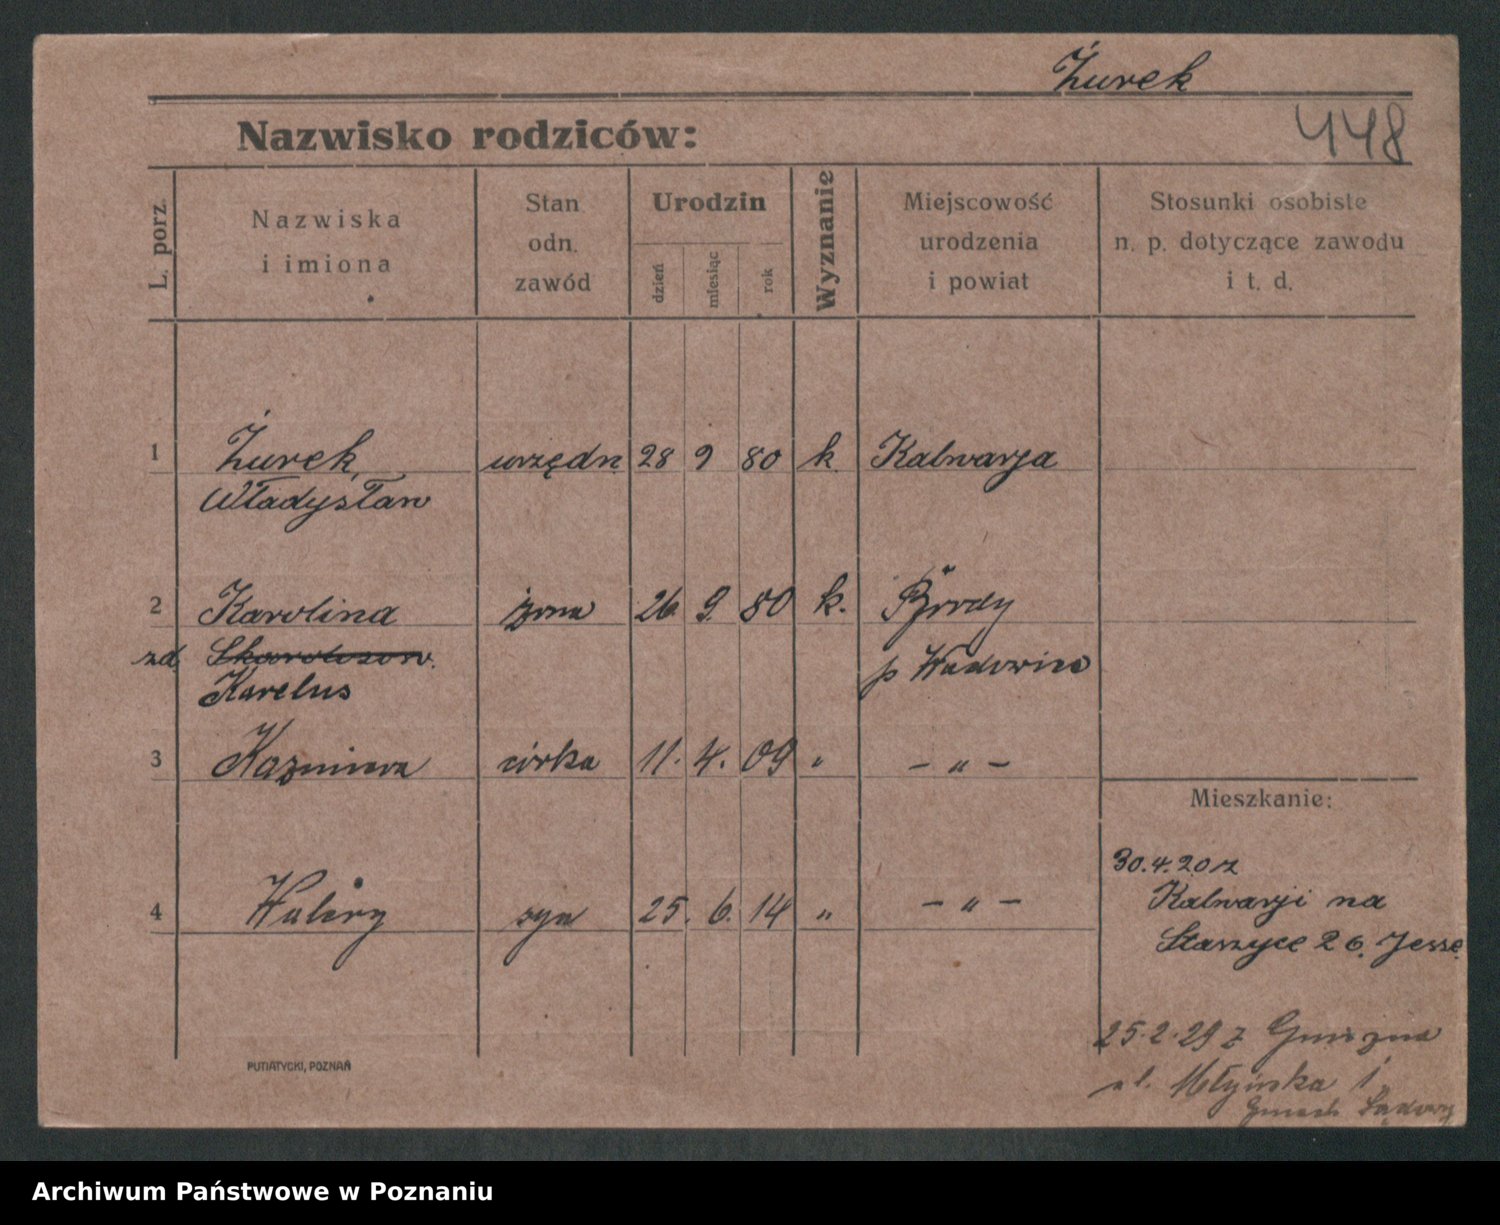 Żurek
Nazwisko rodziców:
448
L. porz.
Nazwiska
i imiona
Stan
odn.
zawód
Urodzin
dzień
miesiąc
rok
Wyznanie
Miejscowość
urodzenia
i powiat
Stosunki osobiste
n. p. dotyczące zawodu
i t. d.
1 Żurek urzędn. 28 9 80 k. Kalwarja
Władysław
2 Karolina żona 26. 9. 80 k. Brody
zd. p Wadowice
Karelus
3 Kazmiera córka 11. 4. 09 " — " —
Mieszkanie:
4 Walery syn 25. 6. 14 " — " —
30.4.20 z
Kalwarji na
26.
25.2.29 z Gniezna
ul. Młyńska 1.
Gmach Sądowy
PUTIATYCKI, POZNAŃ
Archiwum Państwowe w Poznaniu